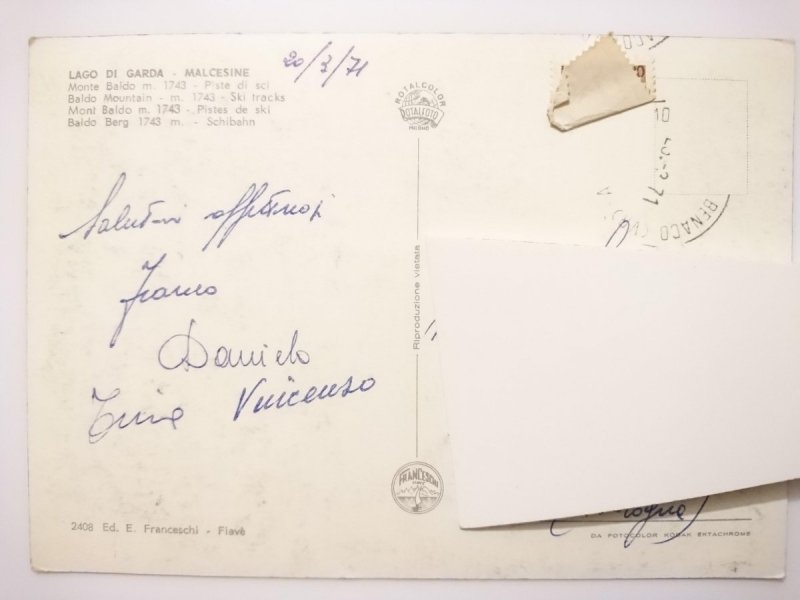 LAGO DI GARDA - MALCESINE
Monte Baldo m. 1743 - Piste di sci
Baldo Mountain - m. 1743 - Ski tracks
Mont Baldo m. 1743 - Pistes de ski
Baldo Berg 1743 m. - Schibahn
20/3/71
Saluti affettuosi
Franco
Daniela
Vincenzo
2408 Ed. E. Franceschi - Fiavè
ROTALCOLOR
ROTALFOTO
MILANO
Riproduzione vietata
FRANCESCHI
FIAVÈ
10
71
BENACO
DA FOTOCOLOR KODAK EKTACHROME